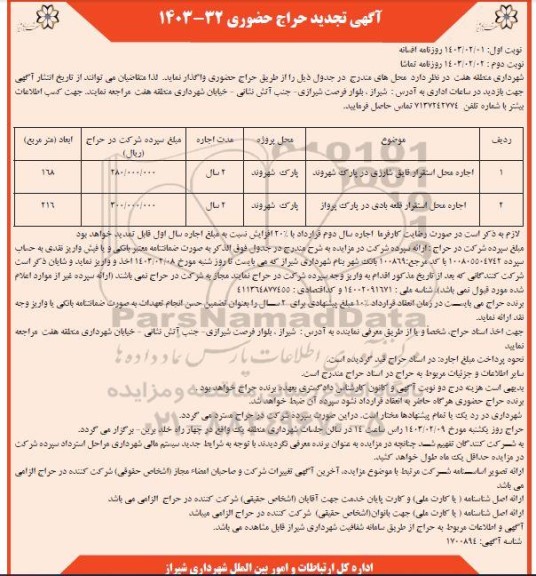 آگهی تجدید حراج حضوری ۳۲-۱۴۰۳
نوبت اول: ۱۴۰۳/۰۲/۰۱ روزنامه افسانه
نوبت دوم: ۱۴۰۳/۰۲/۰۲ روزنامه تماشا
شهرداری منطقه هفت در نظر دارد محل های مندرج در جدول ذیل را از طریق حراج حضوری واگذار نماید. لذا متقاضیان می توانند از تاریخ انتشار آگهی
جهت بازدید در ساعات اداری به آدرس: شیراز، بلوار فرصت شیرازی- جنب آتش نشانی - خیابان شهرداری منطقه هفت مراجعه نمایند. جهت کسب اطلاعات
بیشتر با شماره تلفن ۷۱۳۷۲۴۲۷۷۴ تماس حاصل فرمایید.
ردیف موضوع محل پروژه مدت اجاره مبلغ سپرده شرکت در حراج (ریال) ابعاد (متر مربع)
۱ اجاره محل استقرار قایق شارژی در پارک شهروند پارک شهروند ۲ سال ۲۸۰/۰۰۰/۰۰۰ ۱۶۸
۲ اجاره محل استقرار قلعه بادی در پارک پرواز پارک شهروند ۲ سال ۳۰۰/۰۰۰/۰۰۰ ۲۱۶
لازم به ذکر است در صورت رضایت کارفرما اجاره سال دوم قرارداد با ۲۰٪ افزایش نسبت به مبلغ اجاره سال اول قابل تمدید خواهد بود
مبلغ سپرده شرکت در حراج: ارائه سپرده شرکت در مزایده به شرح مندرج در جدول فوق الذکر به صورت ضمانتنامه معتبر بانکی و یا فیش واریز نقدی به حساب
سپرده ۱۰۰۸۰۵۵۰۴۷۴۲ با کد مرجع: ۱۰۰۸۶۹ بانک شهر بنام شهرداری شیراز که می بایست تا روز شنبه مورخ ۱۴۰۳/۰۲/۰۸ اخذ و واریز نماید و شایان ذکر است
شرکت کنندگانی که بعد از تاریخ مذکور اقدام به واریز وجه سپرده شرکت در حراج نمایند مجاز به شرکت در حراج نمی باشند (ارائه سپرده غیر از موارد اعلام
شده مورد قبول نمی باشد). شناسه ملی: ۱۴۰۰۲۰۹۱۶۷۱ و کداقتصادی: ۴۱۱۳۶۴۸۷۷۴۵۵
برنده حراج می بایست در زمان انعقاد قرارداد ۱۰٪ مبلغ پیشنهادی برای ۲ سال را بعنوان تضمین حسن انجام تعهدات به صورت ضمانتنامه بانکی یا واریز وجه
نقد ارائه نماید.
جهت اخذ اسناد حراج، شخصاً و یا از طریق معرفی نماینده به آدرس: شیراز، بلوار فرصت شیرازی- جنب آتش نشانی - خیابان شهرداری منطقه هفت مراجعه
نمایید
نحوه پرداخت مبلغ اجاره: در اسناد حراج قید گردیده است.
سایر اطلاعات و جزئیات مربوط به حراج در اسناد حراج مندرج است.
بدیهی است هزینه درج دو نوبت آگهی و کانون کارشناس دادگستری بعهده برنده حراج خواهد بود
برنده حراج حضوری هرگاه حاضر به انعقاد قرارداد نشود سپرده آن ضبط خواهد شد.
شهرداری در رد یک یا تمام پیشنهادها مختار است. دراین صورت سپرده شرکت در حراج مسترد می گردد.
حراج روز یکشنبه مورخ ۱۴۰۳/۰۲/۰۹ راس ساعت ۱۴ در سالن جلسات شهرداری منطقه یک واقع در چهار راه خلد برین- برگزار می گردد.
به شرکت کنندگان تفهیم شد چنانچه در مزایده به عنوان برنده معرفی نگردیدند با توجه به شرایط جدید سیستم مالی شهرداری مراحل استرداد سپرده شرکت
در مزایده حداقل یک ماه طول خواهد کشید.
ارائه تصویر اساسنامه شرکت مرتبط با موضوع مزایده، آخرین آگهی تغییرات شرکت و صاحبان امضاء مجاز (اشخاص حقوقی) شرکت کننده در حراج الزامی
می باشد
ارائه اصل شناسنامه (یا کارت ملی) و کارت پایان خدمت جهت آقایان (اشخاص حقیقی) شرکت کننده در حراج الزامی می باشد
ارائه اصل شناسنامه (یا کارت ملی) جهت بانوان(اشخاص حقیقی) شرکت کننده در حراج الزامی میباشد
آگهی و اطلاعات مربوط به حراج از طریق سامانه شفافیت شهرداری شیراز قابل مشاهده می باشد.
شناسه آگهی: ۱۷۰۰۸۹۴
اداره کل ارتباطات و امور بین الملل شهرداری شیراز
ParsNamadData